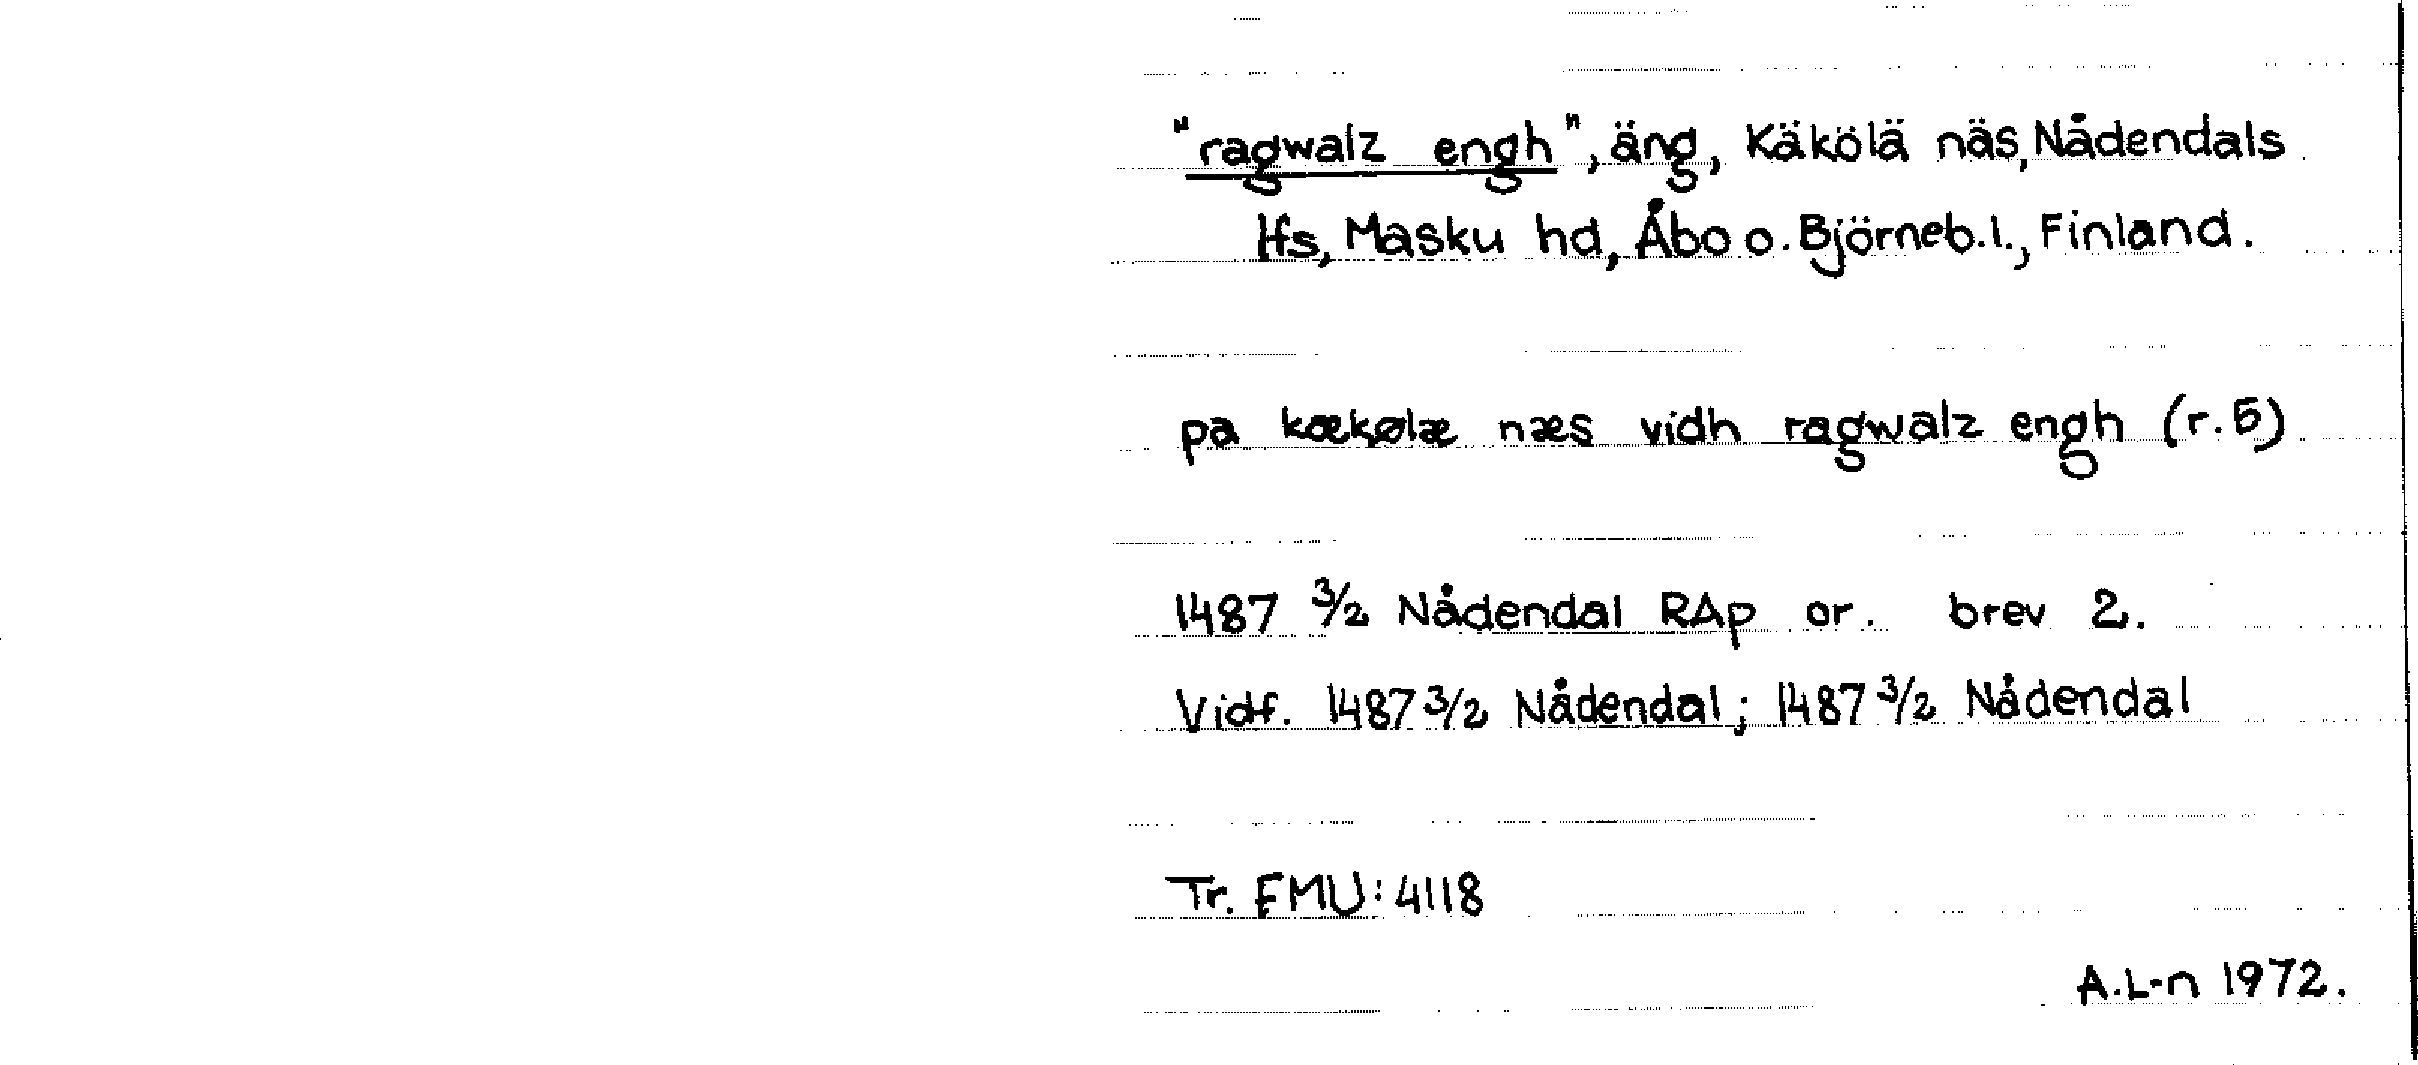 "ragwalz engh", äng, Käkölä näs, Nådendals
lfs, Masku hd, Åbo o. Björneb.l., Finland.
pa kækølæ næs vidh ragwalz engh (r.5)
1487 3/2 Nådendal RAp or. brev 2.
Vidf. 1487 3/2 Nådendal; 1487 3/2 Nådendal
Tr. FMU: 4118
A.L-n 1972.